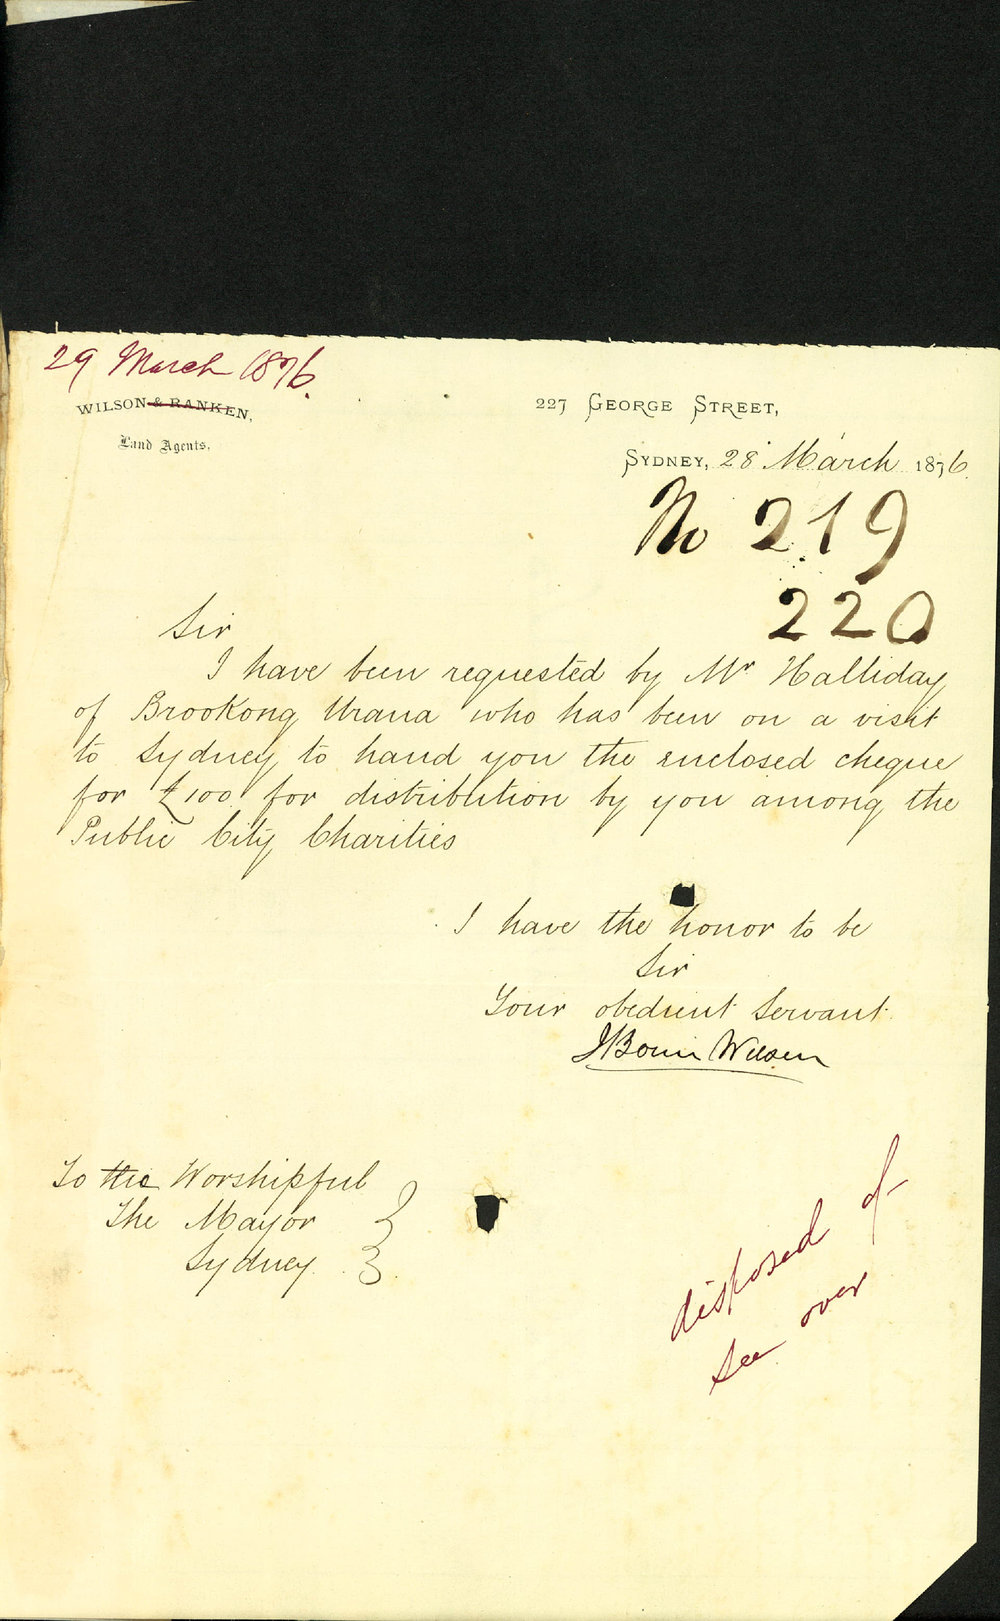 29 March 1876.
WILSON & RANKEN,
Land Agents.
227 GEORGE STREET,
SYDNEY, 28 March 1876.
No 219
220
Sir
I have been requested by Mr Halliday
of Brookong Urana who has been on a visit
to Sydney to hand you the enclosed cheque
for £100 for distribution by you among the
Public City Charities
I have the honor to be
Sir
Your obedient Servant
Wilson
To the Worshipful
The Mayor
Sydney
disposed of
See over